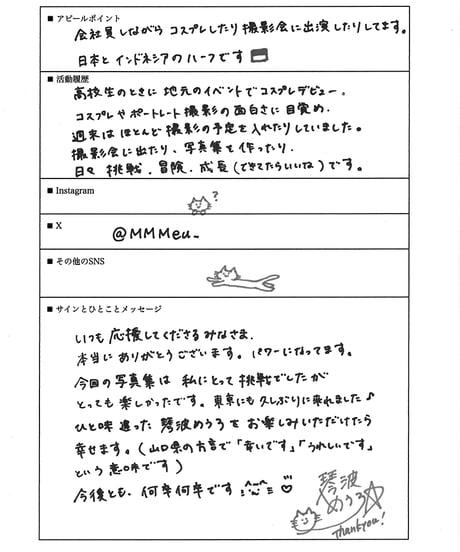 ■ アピールポイント
会社員しながら コスプレしたり 撮影会に出演したりしてます。
日本と インドネシアのハーフです
■ 活動履歴
高校生のときに 地元のイベントでコスプレデビュー、
コスプレやポートレート撮影の面白さに目覚め、
週末は ほとんど撮影の予定を入れたりしていました。
撮影会に出たり、写真集を作ったり、
日々 挑戦、冒険、成長(できてたらいいな)です。
■ Instagram
?
■ X
@MMMeu_
■ その他のSNS
■ サインとひとことメッセージ
いつも 応援してくださるみなさま、
本当に ありがとうございます。パワーになってます。
今回の写真集は 私にとって挑戦でしたが
とっても楽しかったです。東京にも久しぶりに来れました♪
ひと味違った 琴波めうろを お楽しみいただけたら
幸せます。(山口県の方言で「幸いです」「うれしいです」
という意味です)
今後とも、何卒何卒です
琴波
めうろ
Thankyou!